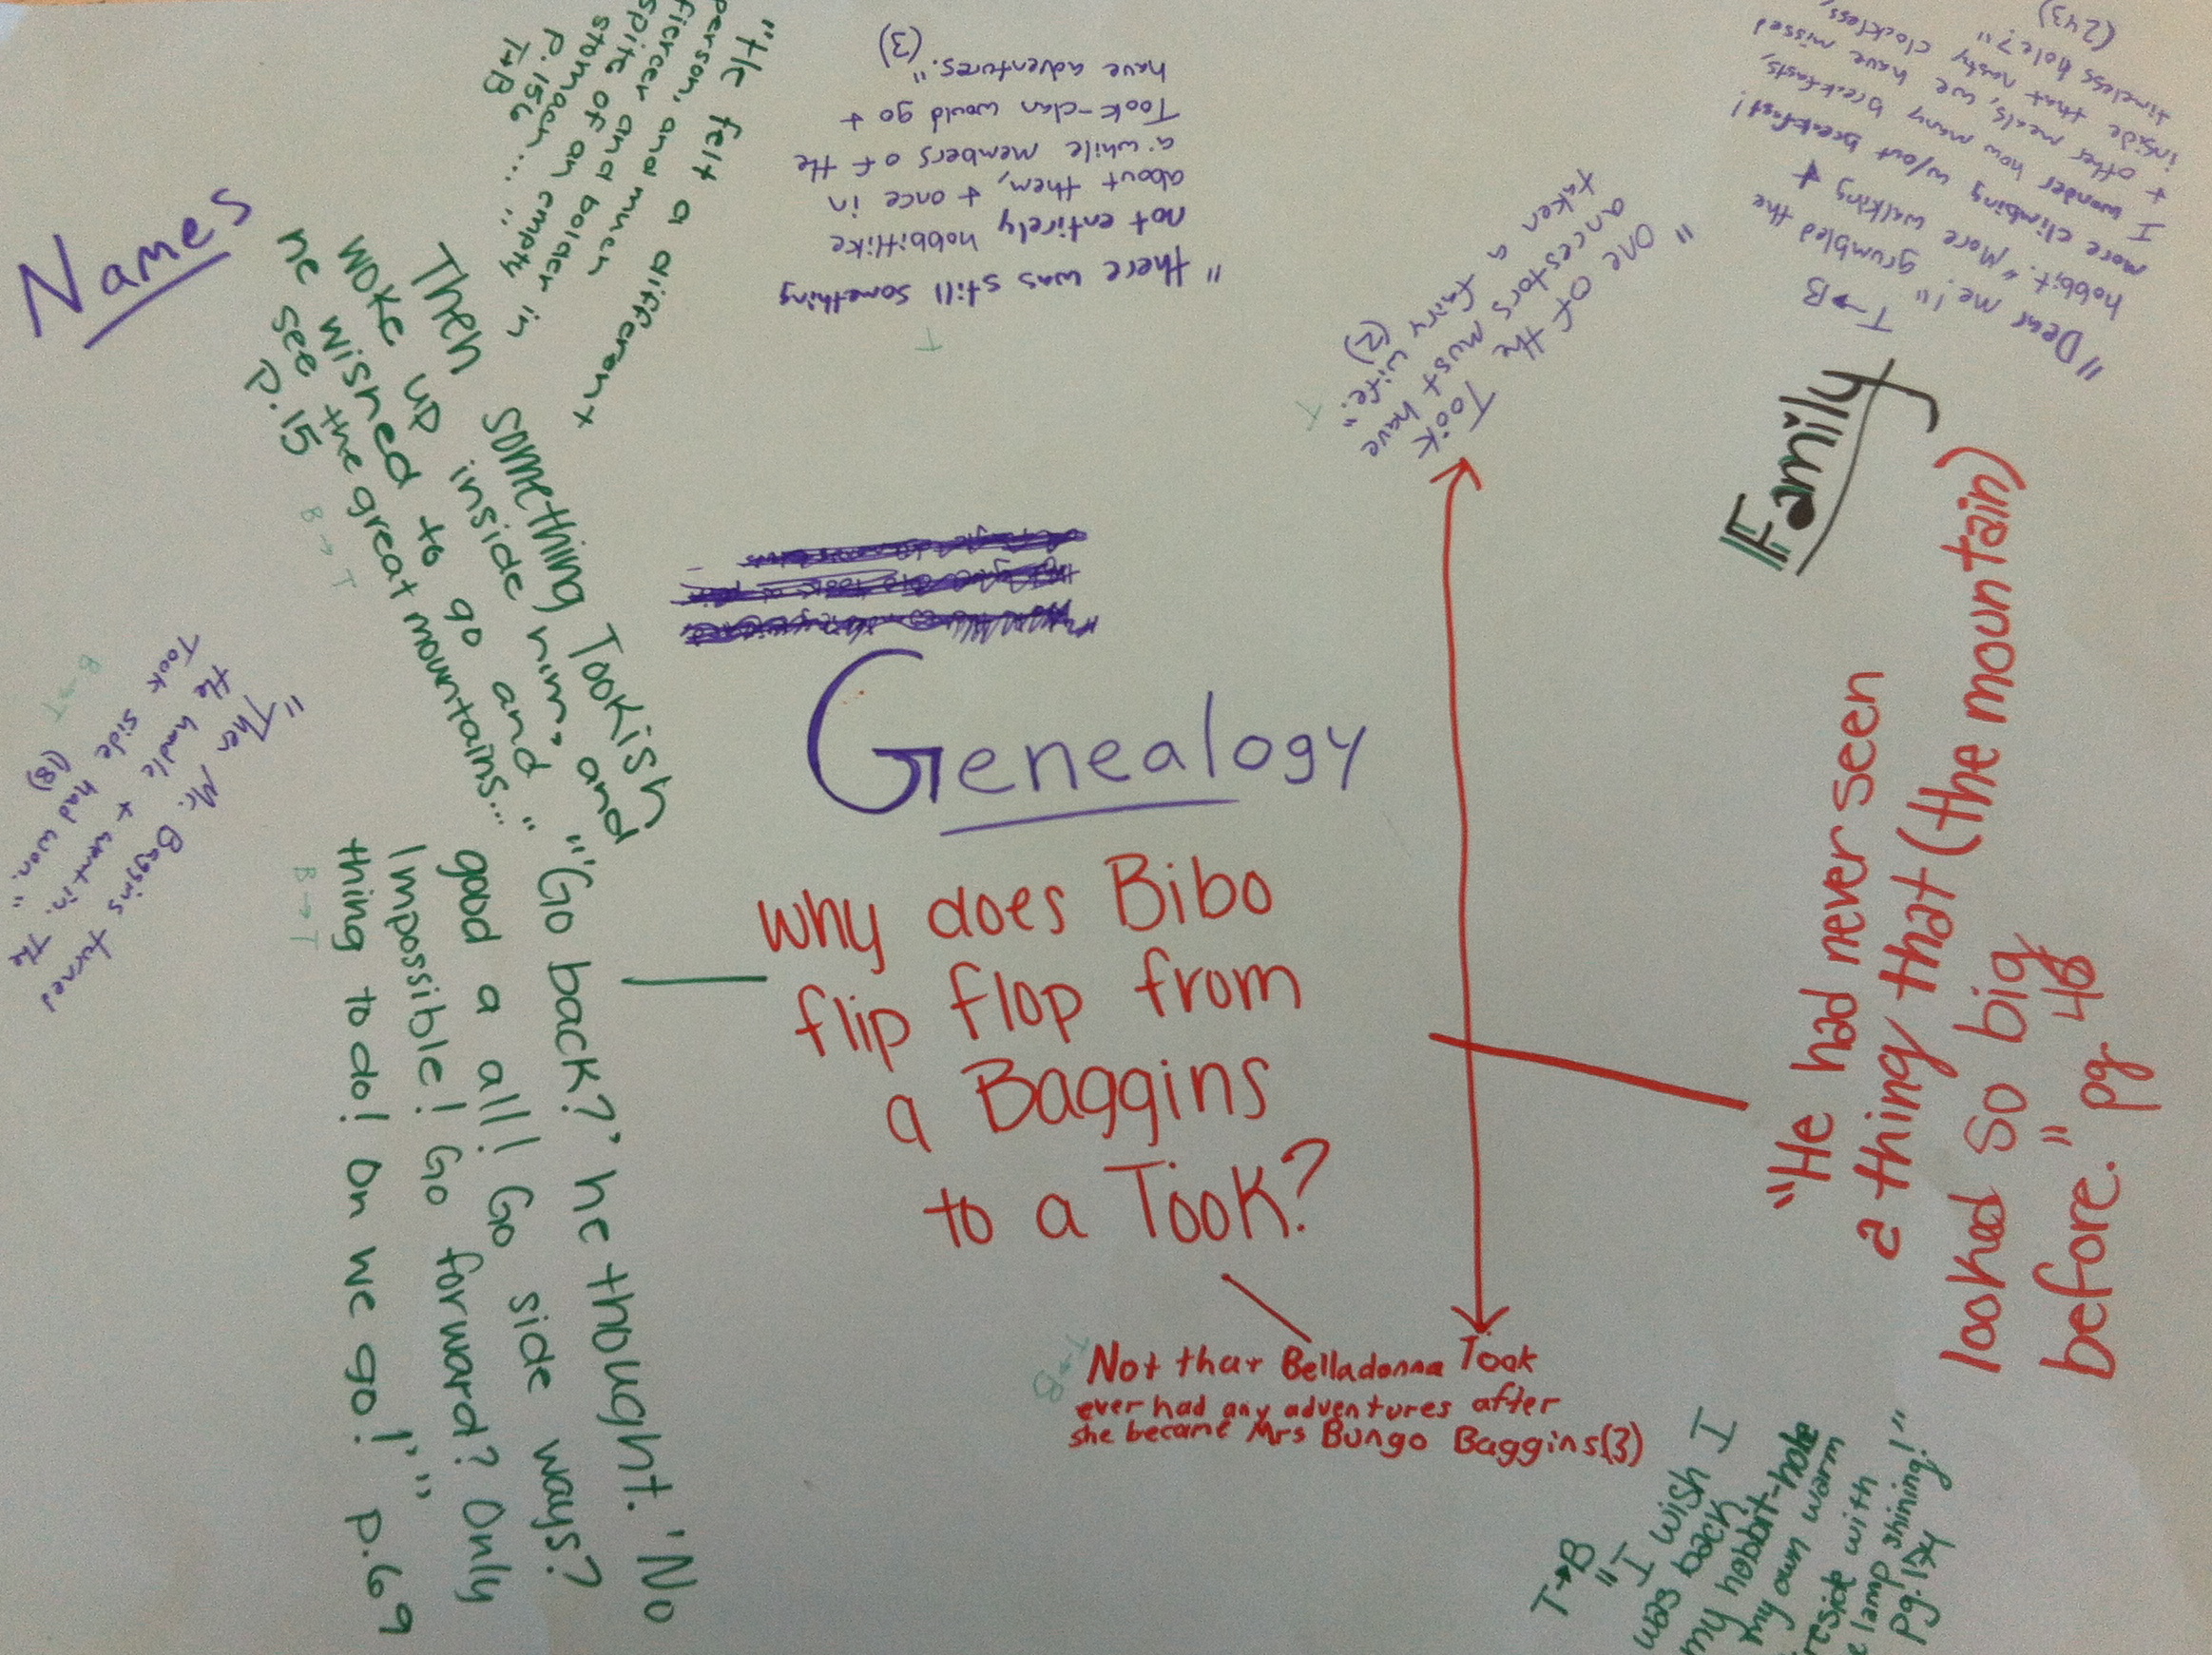 Names
"He felt a different
person, and much
fiercer and bolder in
spite of an empty
stomach..."
P.156
T→B
"there was still something
not entirely hobbitlike
about them, + once in
a while members of the
Took-clan would go +
have adventures." (3)
T
"One of the Took
ancestors must have
taken a fairy wife." (2)
T
T→B
"Dear me!" grumbled the
hobbit. "More walking +
more climbing w/out breakfast!
I wonder how many breakfasts,
+ other meals, we have missed
inside that nasty clockless,
timeless hole?"
(243)
Family
Then something Tookish
woke up inside him, and
he wished to go and
see the great mountains..."
P.15
B→T
"Then Mr. Baggins turned
the handle + went in. The
Took side had won."
(18)
B→T
Genealogy
why does Bibo
flip flop from
a Baggins
to a Took?
"'Go back?' he thought. 'No
good a all! Go side ways?
Impossible! Go forward? Only
thing to do! On we go!'"
P.69
B→T
"He had never seen
a thing that (the mountain)
looked so big
before." pg 48
T→B
Not that Belladonna Took
ever had any adventures after
she became Mrs Bungo Baggins(3)
T→B
"I wish I
was back
my hobbit-hole
my own warm
reside with
e lamp shining!"
Pg.174